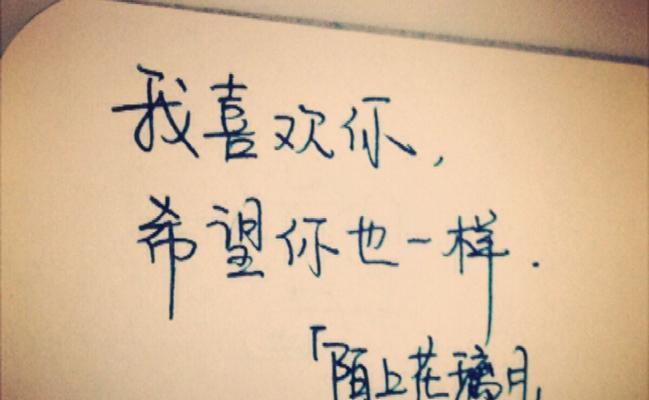 我喜欢你,
希望你也一样.
「陌上花璃月